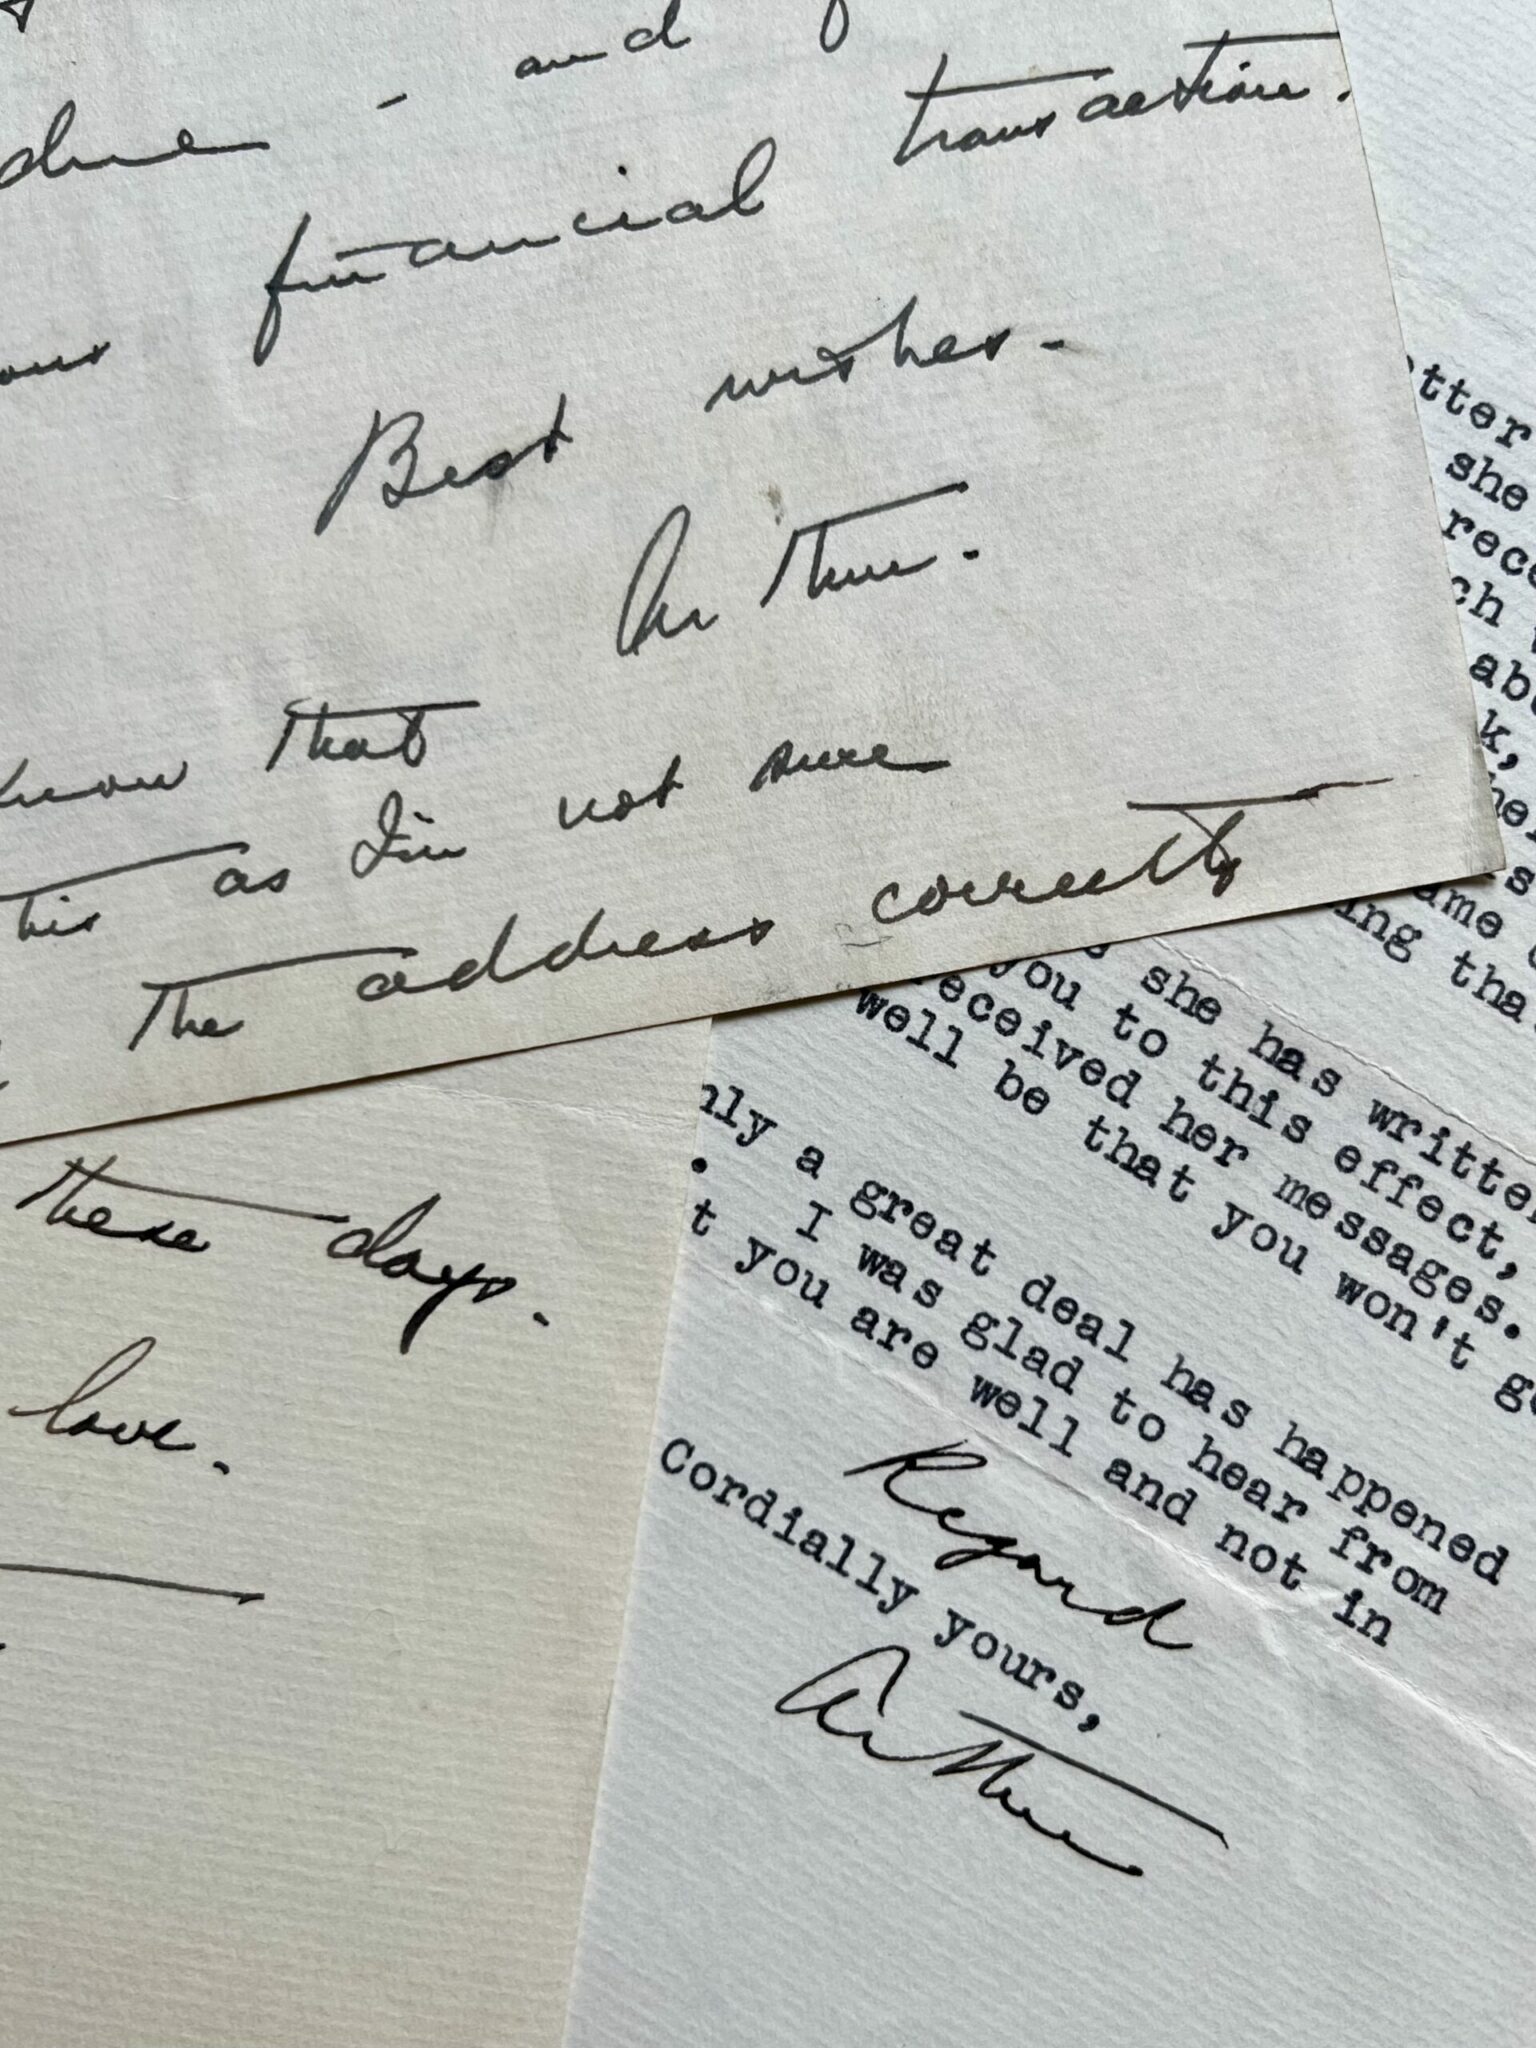 and
due -
financial transaction.
Best wishes.
Arthur.
know that
this as I'm not sure
the address correctly
these days.
love.
she
she has written
you to this effect,
received her messages.
well be that you won't
a great deal has happened
. I was glad to hear from
t you are well and not in
Cordially yours,
Regard
Arthur